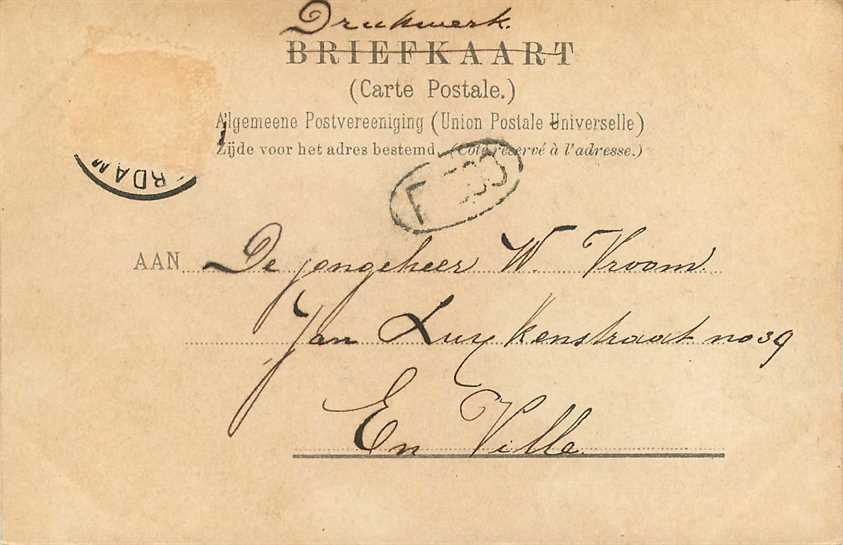 Drukwerk.
BRIEFKAART
(Carte Postale.)
Algemeene Postvereeniging (Union Postale Universelle)
Zijde voor het adres bestemd. (Côté réservé à l'adresse.)
RDAM
AAN De jongeheer W. Vroom.
Jan Luykenstraat no 39
En Ville.